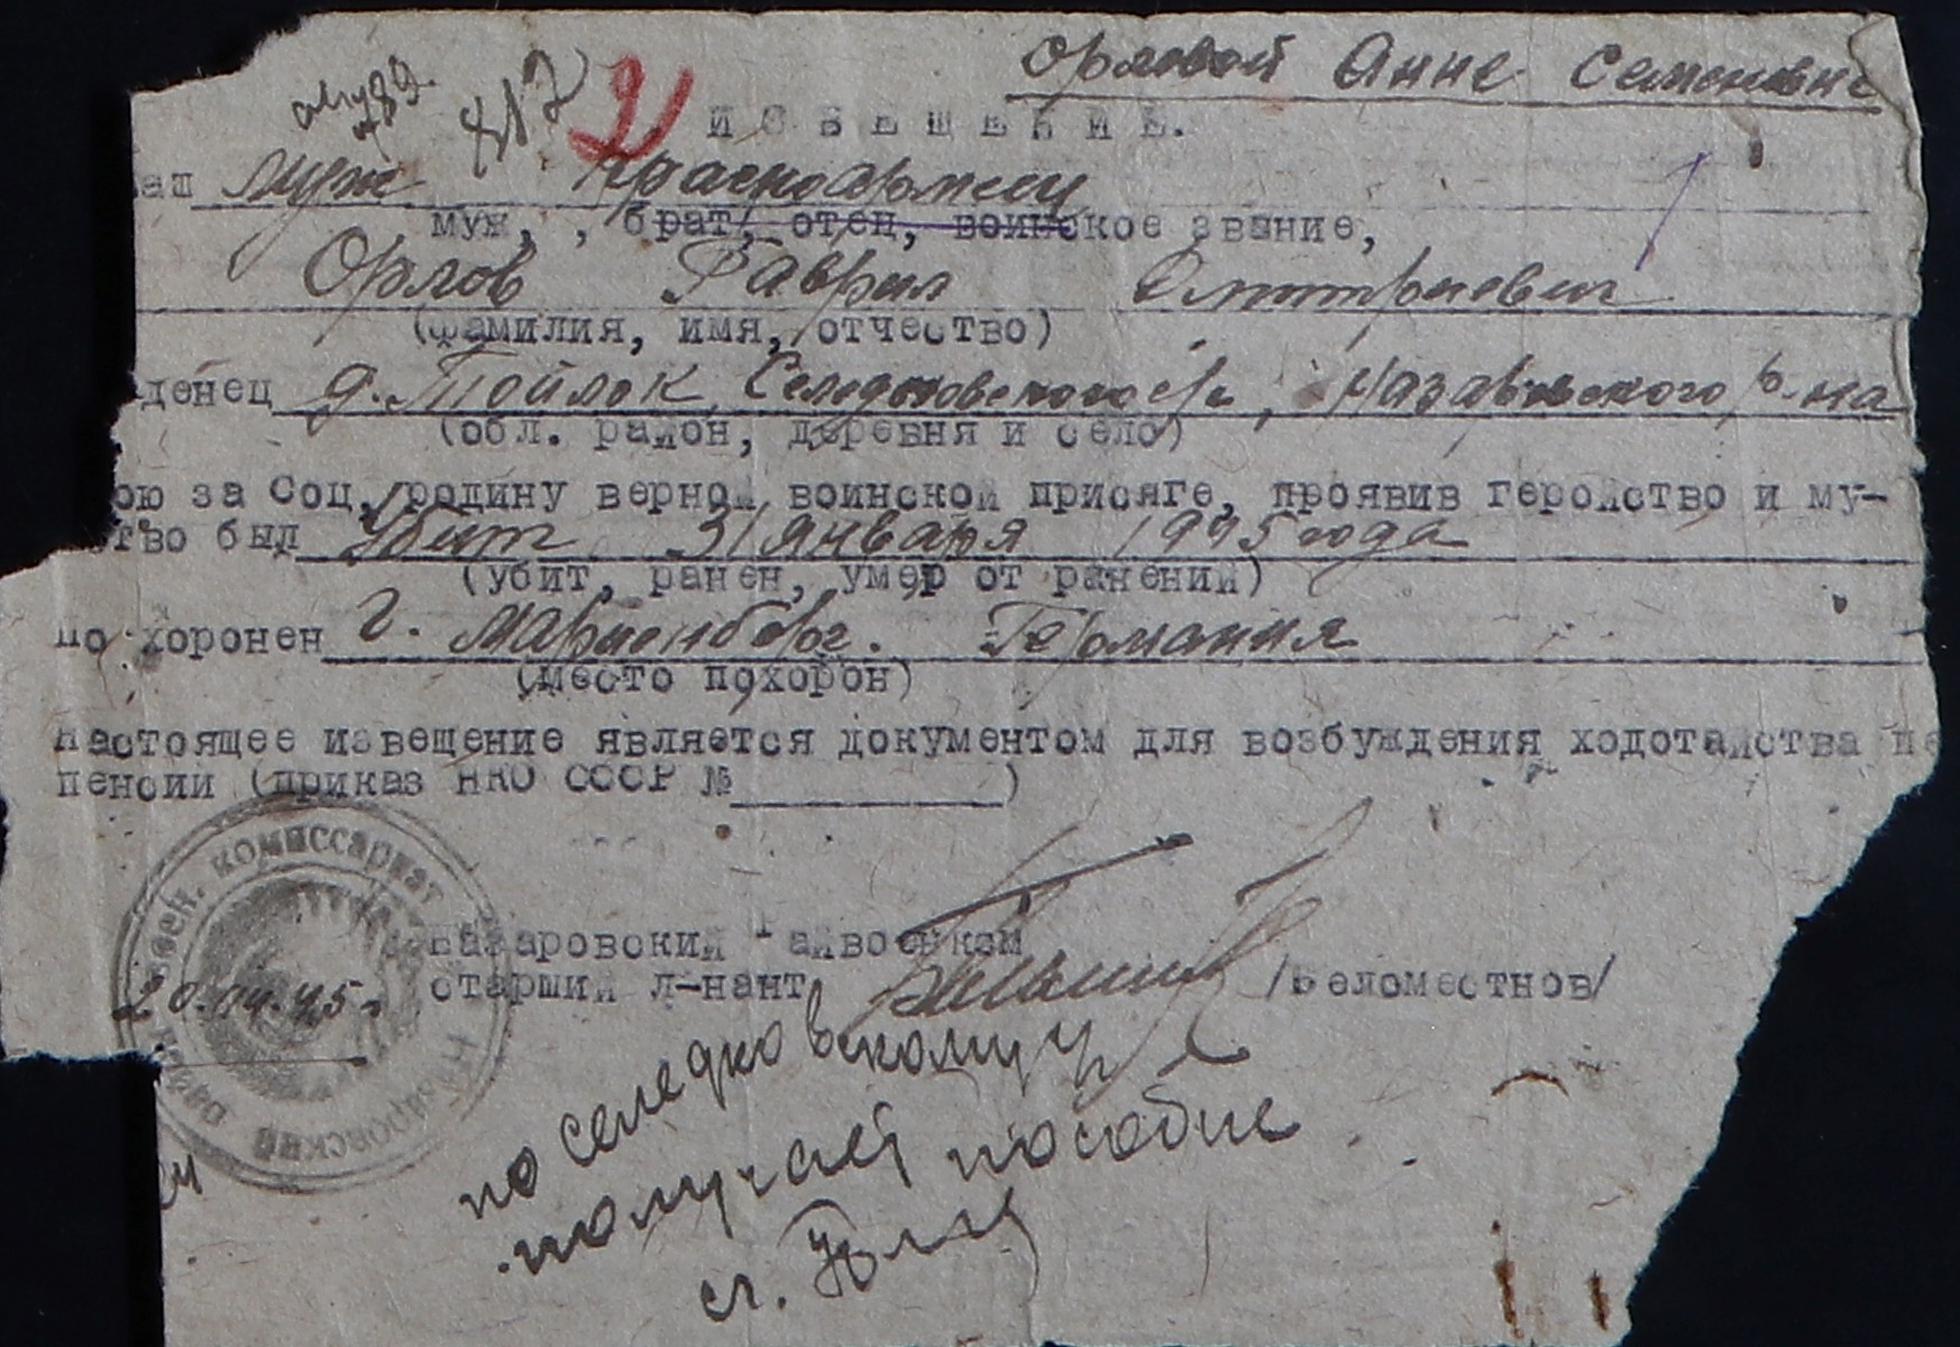 Орловой Анне Семеновне
817 2
ИЗВЕЩЕНИЕ.
ваш муж красноармеец
муж, , брат, отец, воинское звание,
Орлов Гаврил Дмитриевич
(фамилия, имя, отчество)
денец д. Тойлок, Селедковского с/с, Назаровского р-на
(обл. район, деревня и село)
ою за Соц. родину верной воинской присяге, проявив геройство и му-
тво был Убит 31 января 1945 года
(убит, ранен, умер от ранений)
по хоронен г. Мариенберг. Германия
(место похорон)
Настоящее извещение является документом для возбуждения ходотайства
пенсии (приказ НКО СССР № )
Назаровский Райвоенком
старший л-нант /Беломестнов/
20.04.45г.
воен. комиссариат Назаровский
по селедковскому
получает пособие
ст.